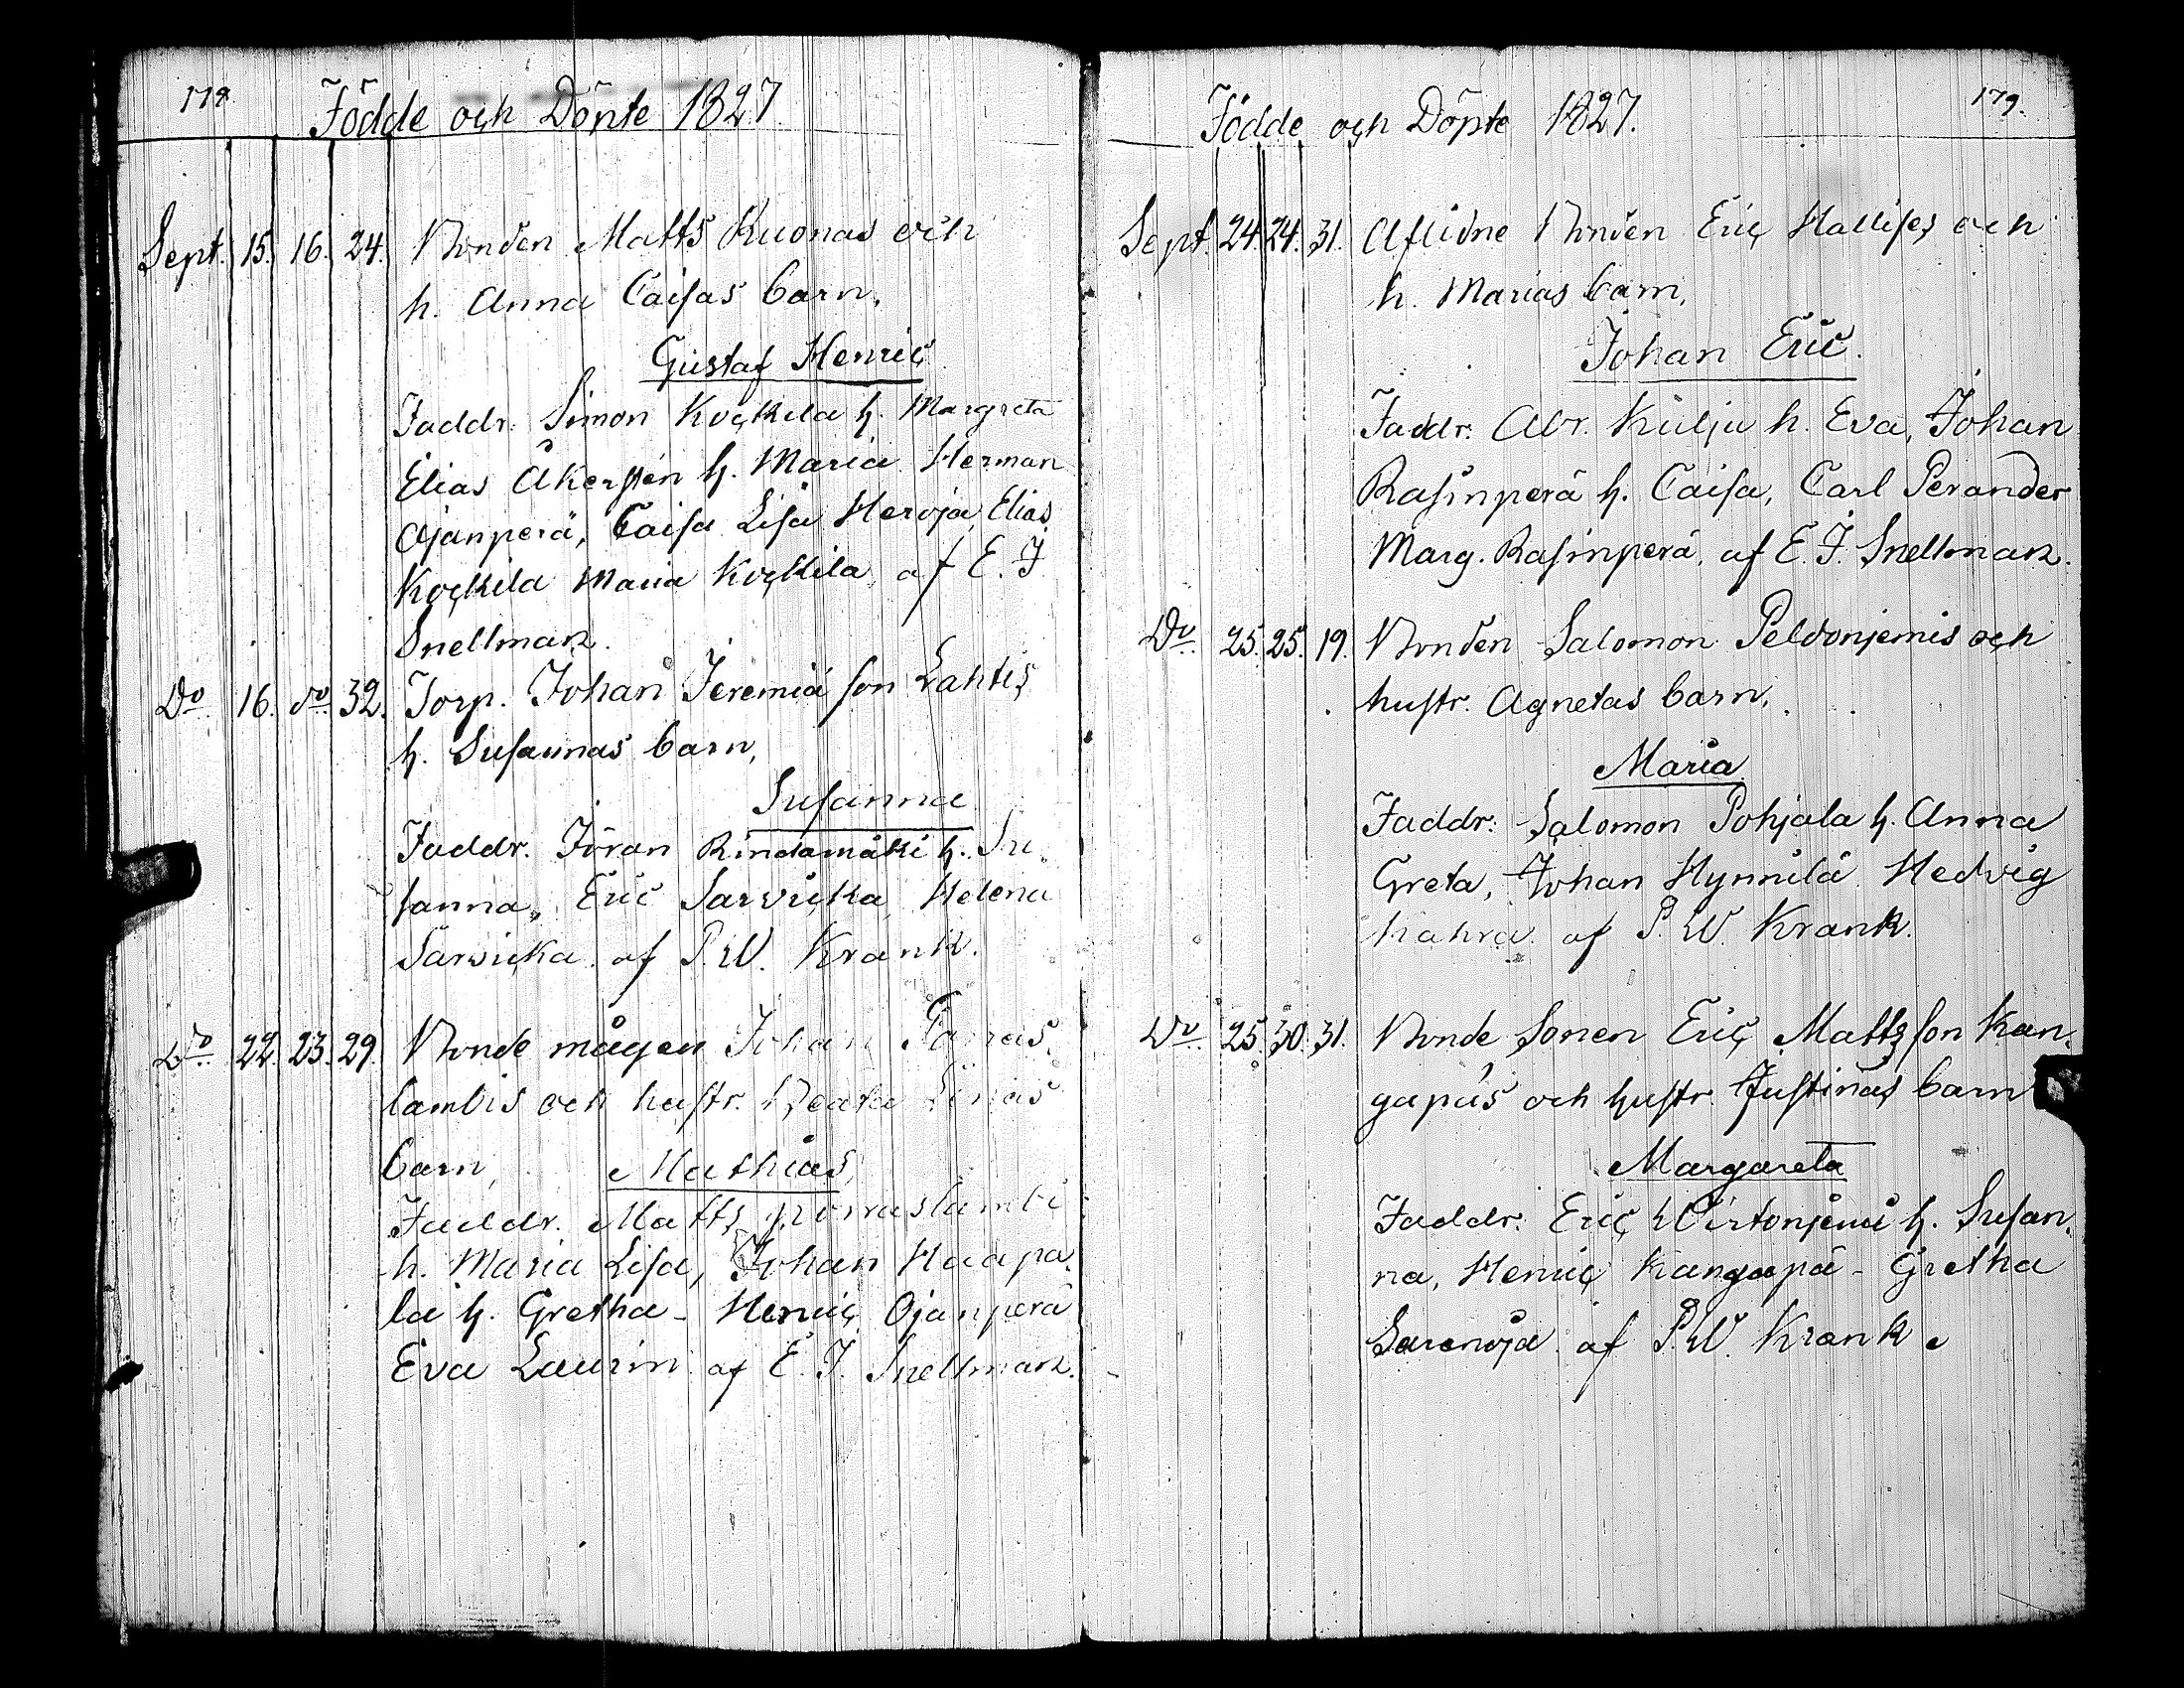 178.
Födde och Döpte 1827
Sept. 15. 16. 24. Bonden Matts Kuonas och
h. Anna Caisas barn,
Gustaf Henric
Faddr. Simon Kåckila h. Margreta
Elias Åkerstén h. Maria Herman
Ojanperä, Caisa Lisa Heroja, Elias
Kåckila Maria Kåckila, af E. J
Snellman.
Do 16. do 32. Torp. Johan Jeremiä son Lahtis
h. Susannas barn,
Susanna
Faddr. Jöran Rindamäki h. Su-
sanna, Eric Sarvicka, Helena
Sarvicka. af P. W. Krank.
Do 22. 23. 29. Bonde mågen Johan Porras
lambis och hustr. Beata Linas
barn, Mathias,
Faddr. Matts Porraslambi
h. Maria Lisa, Johan Haapa-
la h. Gretha - Henric Ojanperä
Eva Laurin af E. J. Snellman.
179.
Födde och Döpte 1827.
Sept. 24. 24. 31. Aflidne Bonden Eric Hallises och
h. Marias barn,
Johan Eric.
Faddr. Abr. Kilju h. Eva, Johan
Rasinperä h. Caisa, Carl Perander
Marg. Rasinperä, af E. J. Snellman.
Do 25. 25. 19. Bonden Salomon Peldonjemis och
hustr. Agnetas barn,
Maria
Faddr. Salomon Pohjala h. Anna
Greta, Johan Hynnilä Hedvig
Kahra. af P. W. Krank.
Do 25. 30. 31. Bonde Sonen Eric Mattsson Kan-
gapäs och hustr. Justinas barn
Margareta
Faddr. Eric Wirtonjemi h. Susan-
na, Henric Kangapä - Gretha
Sarenoja af P. W. Krank.